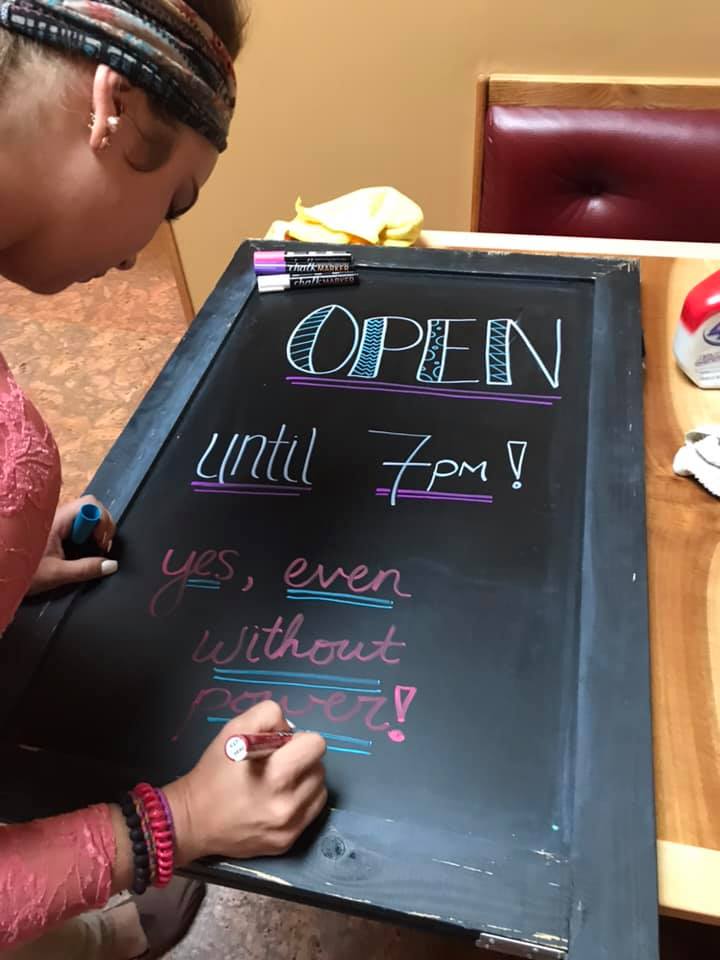 chalkMARKER
chalkMARKER
OPEN
until 7pm!
yes, even
without
power!